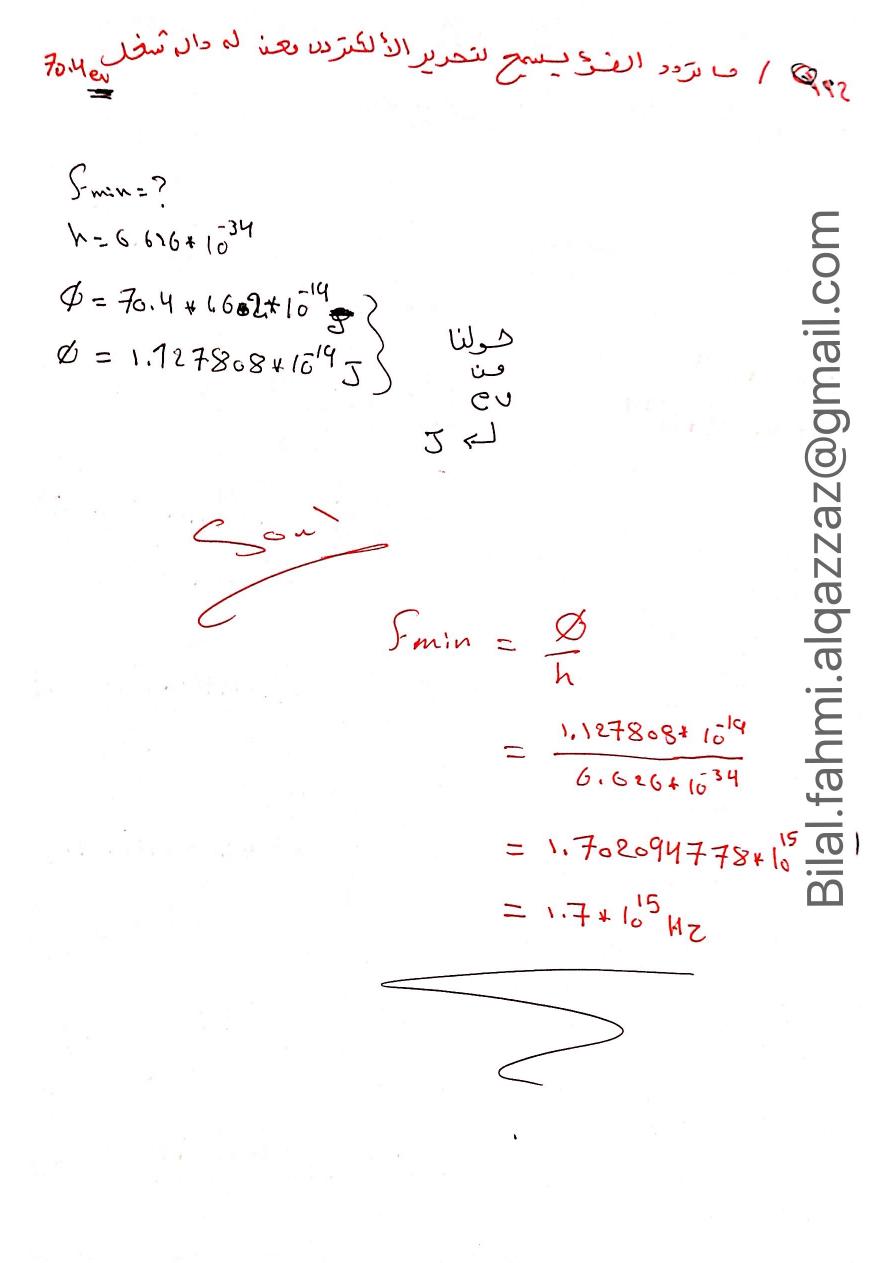 س١٩٢ / ما تردد الضوء يسمح لتحرير الألكترون معدن له دالة شغل 70.4 ev
fmin = ?
h = 6.626 * 10^-34
Ø = 70.4 * 1.602 * 10^-19 J
Ø = 1.127808 * 10^-19 J
حولنا
من
ev
J ⇐
Soul
fmin = Ø / h
= 1.127808 * 10^-19 / 6.626 * 10^-34
= 1.702094778 * 10^15
= 1.7 * 10^15 Hz
Bilal.fahmi.alqazzaz@gmail.com